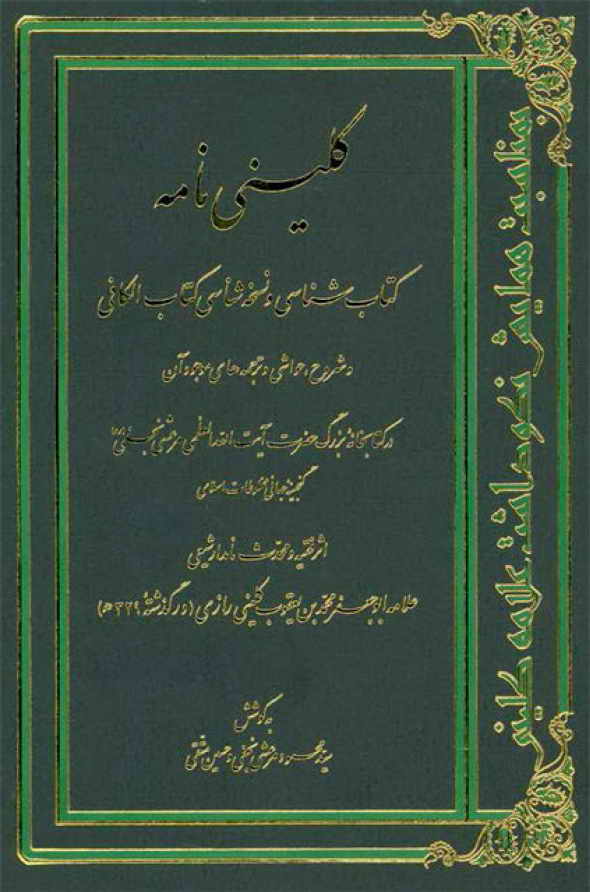 کلینی نامه
کتاب شناسی و نسخه شناسی کتاب الکافی
و شروح، حواشی و ترجمه های موجود آن
در کتابخانه بزرگ حضرت آیت الله العظمی مرعشی نجفی
گنجینه جهانی مخطوطات اسلامی
اثر فقیه و محدث نامدار شیعی
علامه ابوجعفر محمد بن یعقوب کلینی رازی (درگذشته ۳۲۹ه)
به کوشش
سید محمود مرعشی نجفی و حسین متقی
بمناسبت همایش نکوداشت علامه کلینی